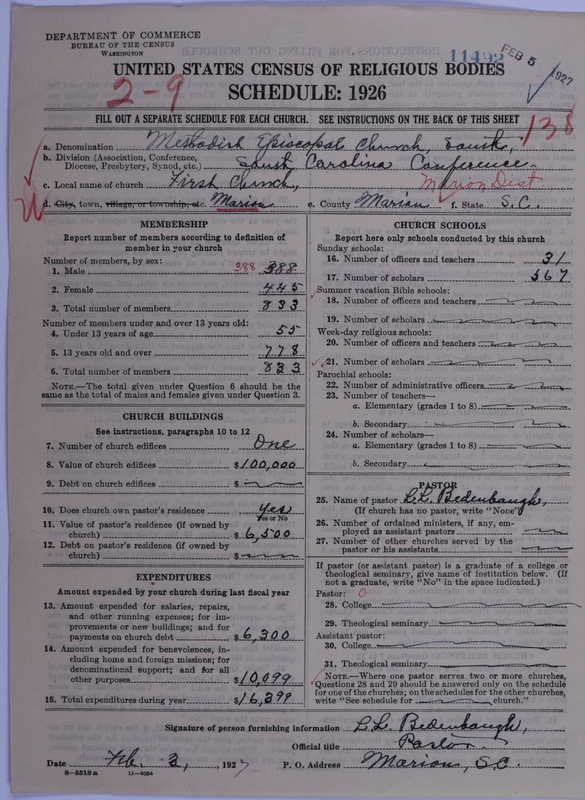 DEPARTMENT OF COMMERCE
BUREAU OF THE CENSUS
WASHINGTON
11492
FEB 5 1927
UNITED STATES CENSUS OF RELIGIOUS BODIES
2-9
SCHEDULE: 1926
FILL OUT A SEPARATE SCHEDULE FOR EACH CHURCH. SEE INSTRUCTIONS ON THE BACK OF THIS SHEET
138
a. Denomination Methodist Episcopal Church, South,
b. Division (Association, Conference, Diocese, Presbytery, Synod, etc.) South Carolina Conference
c. Local name of church First Church,
Marion Dist
d. City, town, village, or township, etc. Marion e. County Marion f. State S.C.
MEMBERSHIP
Report number of members according to definition of member in your church
Number of members, by sex:
1. Male 388 388
2. Female 445
3. Total number of members 833
Number of members under and over 13 years old:
4. Under 13 years of age 55
5. 13 years old and over 778
6. Total number of members 833
NOTE.—The total given under Question 6 should be the same as the total of males and females given under Question 3.
CHURCH BUILDINGS
See instructions, paragraphs 10 to 12
7. Number of church edifices One
8. Value of church edifices $100,000
9. Debt on church edifices $
10. Does church own pastor's residence Yes
Yes or No
11. Value of pastor's residence (if owned by church) $6,500
12. Debt on pastor's residence (if owned by church) $
EXPENDITURES
Amount expended by your church during last fiscal year
13. Amount expended for salaries, repairs, and other running expenses; for improvements or new buildings; and for payments on church debt $6,300
14. Amount expended for benevolences, including home and foreign missions; for denominational support; and for all other purposes $10,099
15. Total expenditures during year $16,399
CHURCH SCHOOLS
Report here only schools conducted by this church
Sunday schools:
16. Number of officers and teachers 31
17. Number of scholars 567
Summer vacation Bible schools:
18. Number of officers and teachers
19. Number of scholars
Week-day religious schools:
20. Number of officers and teachers
21. Number of scholars
Parochial schools:
22. Number of administrative officers
23. Number of teachers—
a. Elementary (grades 1 to 8)
b. Secondary
24. Number of scholars—
a. Elementary (grades 1 to 8)
b. Secondary
PASTOR
25. Name of pastor L.L. Bedenbaugh,
(If church has no pastor, write "None")
26. Number of ordained ministers, if any, employed as assistant pastors
27. Number of other churches served by the pastor or his assistants
If pastor (or assistant pastor) is a graduate of a college or theological seminary, give name of institution below. (If not a graduate, write "No" in the space indicated.)
Pastor: O
28. College
29. Theological seminary
Assistant pastor:
30. College
31. Theological seminary
NOTE.—Where one pastor serves two or more churches, Questions 28 and 29 should be answered only on the schedule for one of the churches; on the schedules for the other churches, write "See schedule for church."
Signature of person furnishing information L.L. Bedenbaugh,
Official title Pastor
Date Feb. 3, 1927 P. O. Address Marion, S.C.
8-5518 a 11-9034